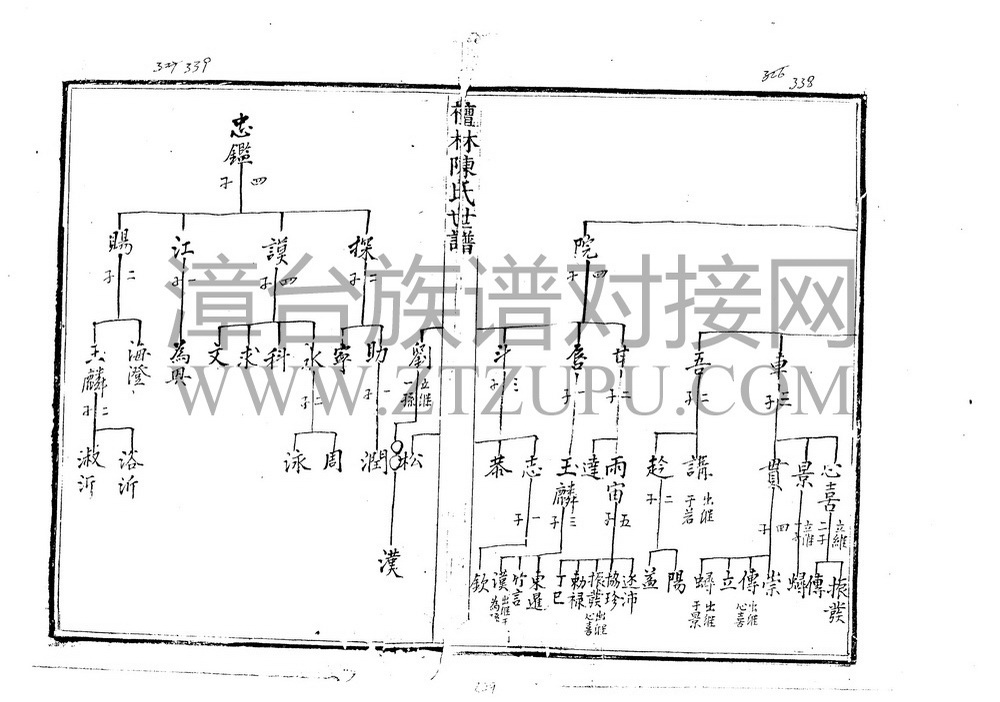 338
339
檀林陳氏世譜
院
四子
車
三子
吾
二子
甘
二子
詹
一子
斗
三子
心喜
立繼二子
景
立繼一子
貫
四子
講
出繼于若
趁
二子
雨宙
五子
達
玉麟
三子
志
一子
恭
振發
傳
蟳
崇
傳
出繼心喜
立
蟳
出繼于景
陽
益
遂沛
協珍
振發
出繼心喜
勅祿
丁巳
東暹
竹言
漢
欽
忠鑑
四子
探
二子
謨
四子
江
一子
賜
二子
劉
立繼一孫
助
一子
寧
永
二子
科
求
文
為興
海澄
玉麟
二子
松
潤
周
泳
浴沂
淑沂
漢
漳台族谱对接网
WWW.ZTZUPU.COM